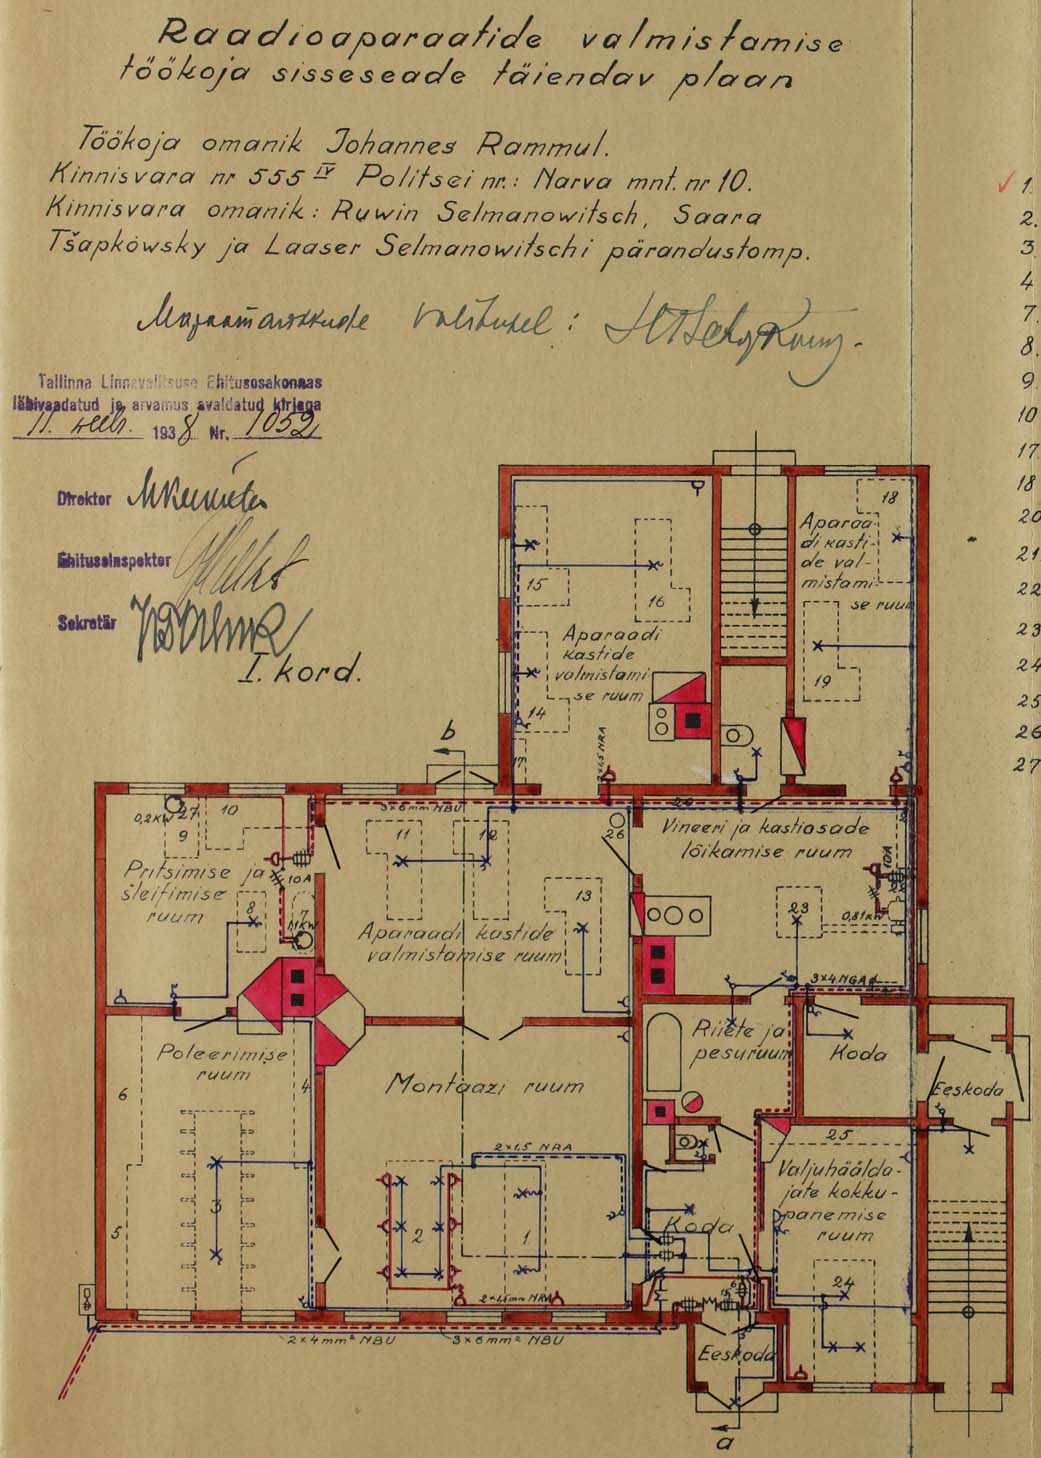 Raadioaparaatide valmistamise
töökoja sisseseade täiendav plaan
Töökoja omanik Johannes Rammul.
Kinnisvara nr 555 IV Politsei nr.: Narva mnt. nr 10.
Kinnisvara omanik: Ruwin Selmanowitsch, Saara
Tšapkowsky ja Laaser Selmanowitschi pärandustomp.
Majaomanikkude volitusel:
Tallinna Linnavalitsuse Ehitusosakonnas
läbivaadatud ja arvamus avaldatud kirjaga
11. 1938 Nr. 1052
Direktor
Ehituseinspektor
Sekretär
I. kord.
1.
2.
3
4
7.
8.
9.
10
17.
18
20
21
22
23
24
25
26
27
b
18
Aparaa-
di kasti-
de val-
mistami-
se ruum
15
16
Aparaadi
kastide
valmistami
se ruum
14
19
17
3×6mm NBU
0,2KW 27
9
10
11
12
26
Vineeri ja kastiosade
lõikamise ruum
Pritsimise ja
šleifimise
ruum
10A
8
7
1,1KW
13
Aparaadi kastide
valmistamise ruum
10A
23
0,81KW
3×4 NGA
Poleerimise
ruum
6
4
5
3
Montaazi ruum
2×1,5 NRA
2
1
2×1,5mm NRA
Riiete ja
pesuruum
Koda
Eeskoda
25
Valjuhäälda-
jate kokku-
panemise
ruum
24
Koda
Eeskoda
2×4mm² NBU
3×6mm² NBU
a